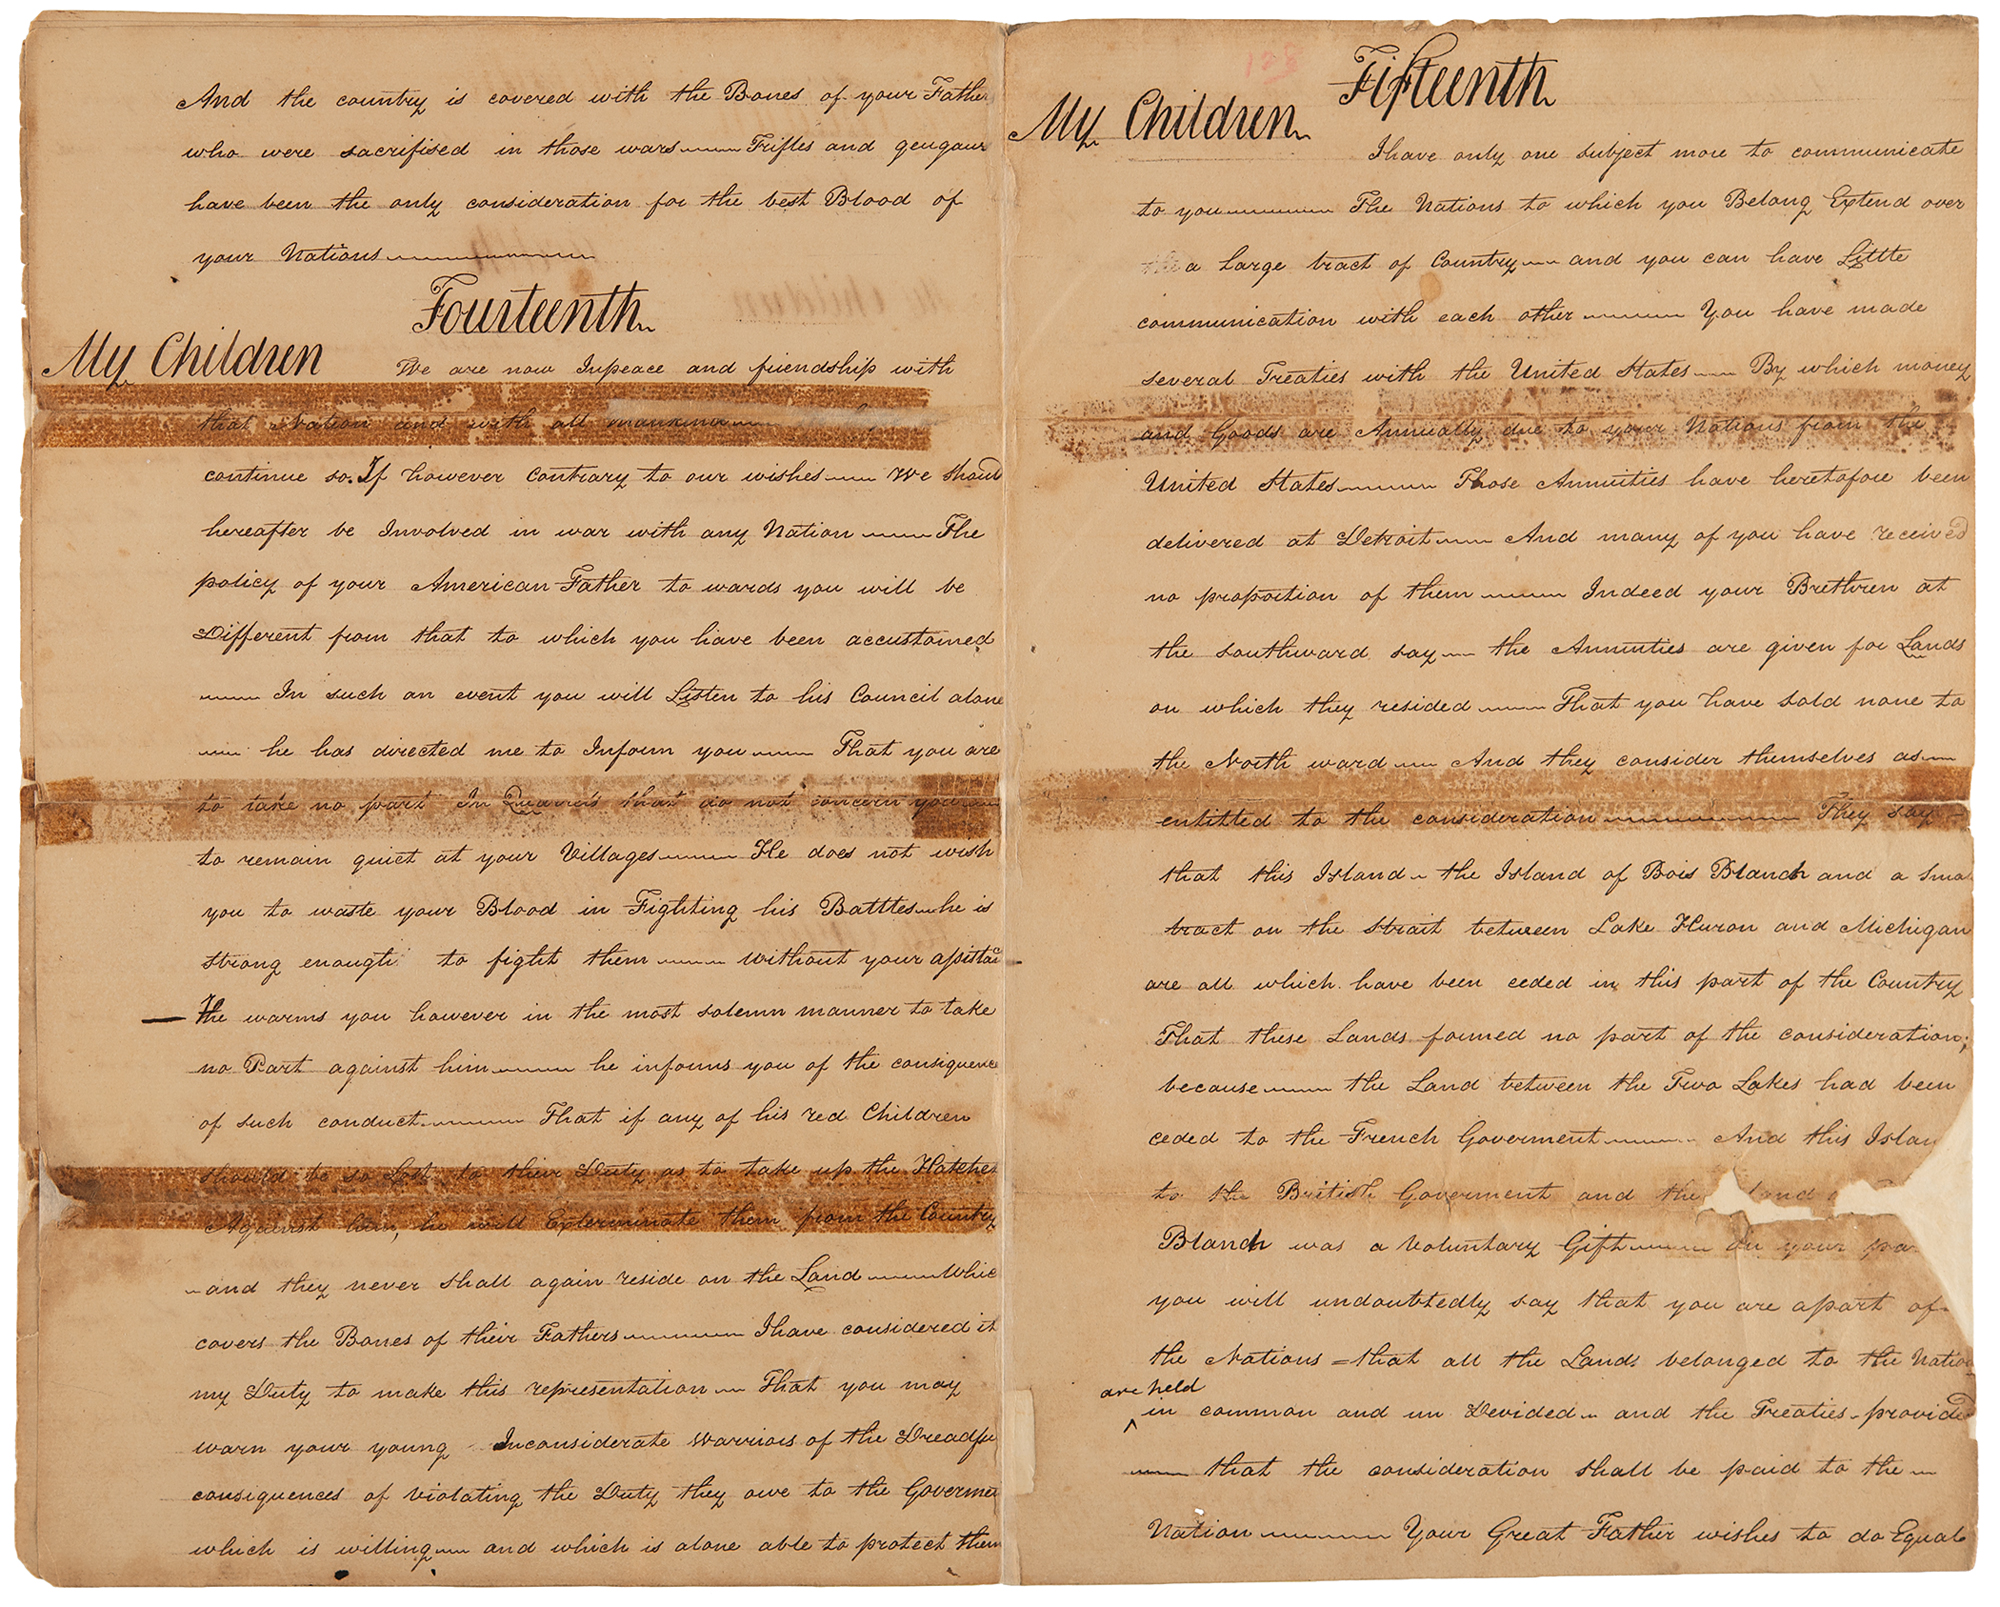 And the country is covered with the Bones of your Father
who were sacrifised in those wars Trifles and geugaws
have been the only consideration for the best Blood of
your Nations
Fourteenth
My Children We are now Inpeace and friendship with
that Nation and with all mankind
continue so. If however contrary to our wishes We should
hereafter be Involved in war with any Nation The
policy of your American Father to wards you will be
Different from that to which you have been accustomed
In such an event you will Listen to his Council alone
he has directed me to Inform you That you are
to take no part In Quarrels that do not concern you
to remain quiet at your Villages He does not wish
you to waste your Blood in Fighting his Battles he is
strong enough to fight them without your
He warms you however in the most solemn manner to take
no Part against him he informs you of the consiquence
of such conduct. That if any of his red Children
should be so Lost to their Duty as to take up the Hatchet
Against him, he will Exterminate them from the Country
and they never shall again reside on the Land Whic
covers the Bones of their Fathers I have considered it
my Duty to make this representation That you may
warn your young Inconsiderate Warriors of the Dreadfu
consiquences of violating the Duty they owe to the Govermen
which is willing and which is alone able to protect them
128
Fifteenth
My Children
I have only one subject more to communicate
to you The Nations to which you Belong Extend over
the a Large tract of Country and you can have Little
communication with each other You have made
several Treaties with the United States By which money
and Goods are Annually due to your Nations from the
United States Those Annuities have heretofore been
delivered at Detroit And many of you have received
no proportion of them Indeed your Brethren at
the southward say the Annuities are given for Lands
on which they resided That you have sold none to
the North ward And they consider themselves as
entitled to the consideration They say
that this Island the Island of Bois Blanch and a Smal
tract on the Strait between Lake Huron and Michigan
are all which have been ceded in this part of the Country
That these Lands formed no part of the consideration;
because the Land between the Two Lakes had been
ceded to the French Goverment And this Islan
to the British Goverment and the
Blanch was a Voluntary Gift on your par
you will undoubtedly say that you are apart of
the Nations = that all the Lands belonged to the Nation
are held
in common and un Devided and the Treaties provided
that the consideration shall be paid to the
Nation Your Great Father wishes to do Equal